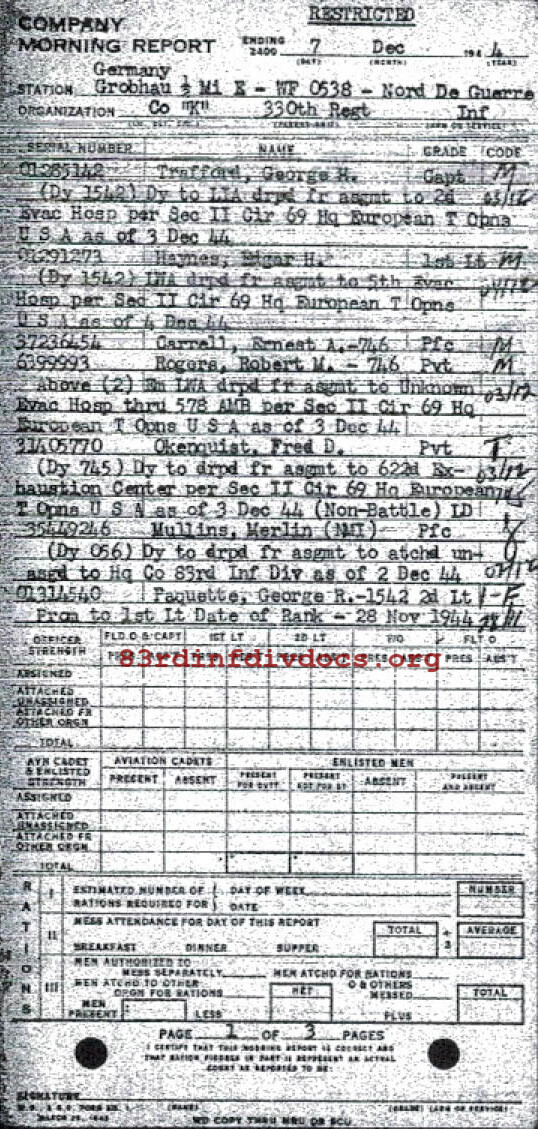 RESTRICTED
COMPANY
MORNING REPORT ENDING 2400 7 Dec 194 4
(DAY) (MONTH) (YEAR)
Germany
STATION Grobhau ½ Mi E - WF 0538 - Nord De Guerre
ORGANIZATION Co "K" 330th Regt Inf
SERIAL NUMBER NAME GRADE CODE
01285142 Trafford, George H. Capt M
(Dy 1542) Dy to LIA drpd fr asgmt to 2d 03/12
Evac Hosp per Sec II Cir 69 Hq European T Opns
U S A as of 3 Dec 44
01291273 Haynes, Edgar H. 1st Lt M
(Dy 1542) LWA drpd fr asgmt to 5th Evac
Hosp per Sec II Cir 69 Hq European T Opns
U S A as of 4 Dec 44
37236454 Carrell, Ernest A.-746 Pfc M
6399993 Rogers, Robert M. - 746 Pvt M
Above (2) Em LWA drpd fr asgmt to Unknown 03/12
Evac Hosp thru 578 AMB per Sec II Cir 69 Hq
European T Opns U S A as of 3 Dec 44
31405770 Okenquist, Fred D. Pvt
(Dy 745) Dy to drpd fr asgmt to 622d Ex- 03/12
haustion Center per Sec II Cir 69 Hq European
T Opns U S A as of 3 Dec 44 (Non-Battle) LD
35449246 Mullins, Merlin (NMI) Pfc
(Dy 056) Dy to drpd fr asgmt to atchd un-
asgd to Hq Co 83rd Inf Div as of 2 Dec 44
01314540 Paquette, George R.-1542 2d Lt
Prom to 1st Lt Date of Rank - 28 Nov 1944
OFFICER STRENGTH FLD O & CAPT 1ST LT 2D LT F/O FLT O
PRES ABS'T
83rdinfdivdocs.org
ASSIGNED
ATTACHED UNASSIGNED
ATTACHED FR OTHER ORGN
TOTAL
AVN CADET & ENLISTED STRENGTH AVIATION CADETS ENLISTED MEN
PRESENT ABSENT PRESENT FOR DUTY PRESENT NOT FOR DY ABSENT PRESENT AND ABSENT
ASSIGNED
ATTACHED UNASSIGNED
ATTACHED FR OTHER ORGN
TOTAL
RATIONS
I ESTIMATED NUMBER OF RATIONS REQUIRED FOR DAY OF WEEK DATE NUMBER
II MESS ATTENDANCE FOR DAY OF THIS REPORT TOTAL ÷ 3 AVERAGE
BREAKFAST DINNER SUPPER
III MEN AUTHORIZED TO MESS SEPARATELY MEN ATCHD FOR RATIONS
MEN ATCHD TO OTHER ORGN FOR RATIONS NET O & OTHERS MESSED TOTAL
MEN PRESENT LESS PLUS
PAGE 1 OF 3 PAGES
I CERTIFY THAT THIS MORNING REPORT IS CORRECT AND
THAT RATION FIGURES IN PART II REPRESENT AN ACTUAL
COUNT AS REPORTED TO ME:
SIGNATURE
W.D., A.G.O. FORM NO. 1 (NAME) (GRADE) (ARM OR SERVICE)
MARCH 29, 1943
WD COPY THRU MRU OR SCU